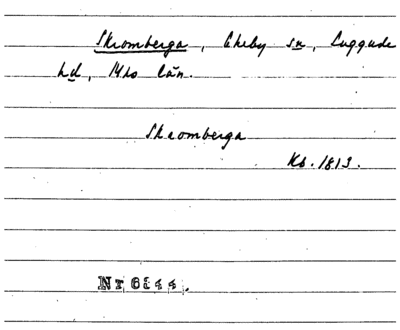 Skromberga, Ekeby sn, Luggude
hd, Mhs län.
Skromberga
Kb. 1813.
Nr 6844.